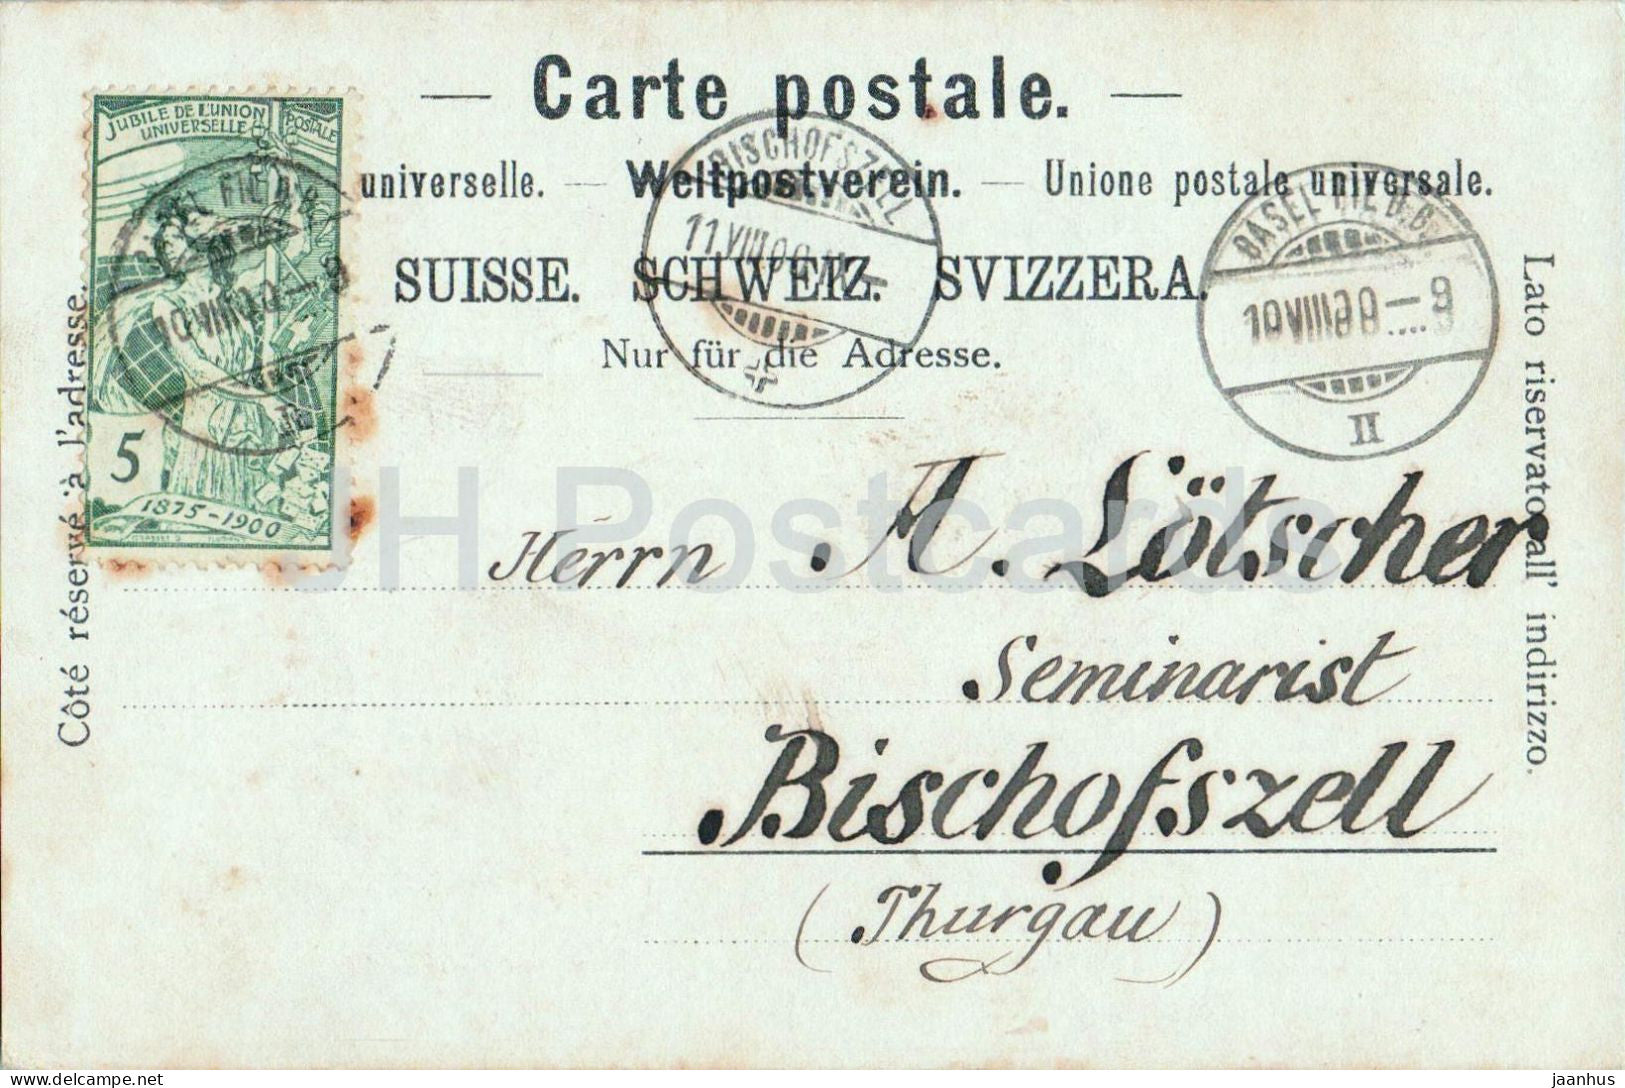 Carte postale.
JUBILÉ DE L'UNION POSTALE
UNIVERSELLE
universelle. — Weltpostverein. — Unione postale universale.
SUISSE. SCHWEIZ. SVIZZERA.
Nur für die Adresse.
BISCHOFSZELL
11.VIII.00
BASEL
10.VIII.00.–9
II
5
1875–1900
Côté réservé à l'adresse.
Lato riservato all' indirizzo.
Herrn A. Lötscher
Seminarist
Bischofszell
(Thurgau)
JH Postcards
delcampe.net
jaanhus